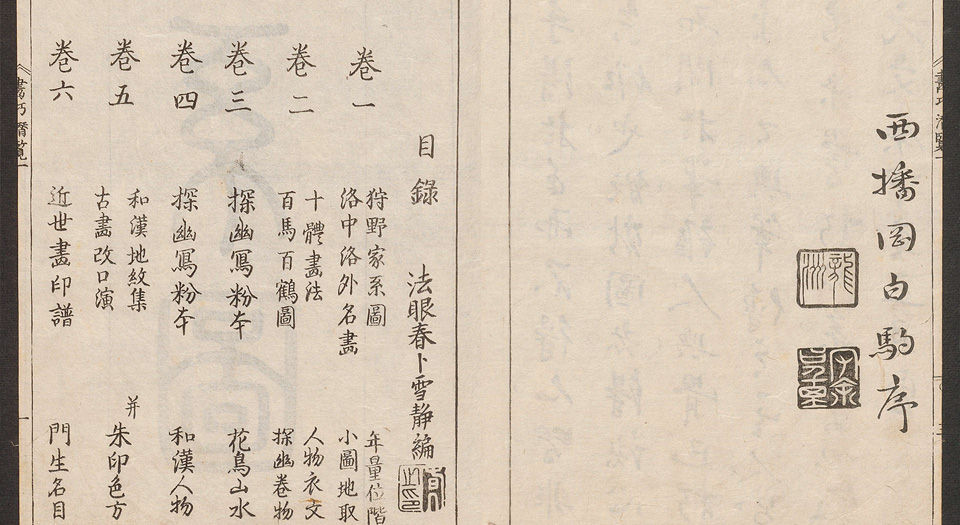 西播岡白駒序
目錄
法眼春卜雪静編
卷一
狩野家系圖
年量位階
洛中洛外名畵
小圖地取
卷二
十體畵法
人物衣文
百馬百鶴圖
探幽卷物
卷三
探幽冩粉本
花鳥山水
卷四
探幽冩粉本
和漢人物
卷五
和漢地紋集
古畵改口演
并
朱印色方
卷六
近世畫印譜
門生名目